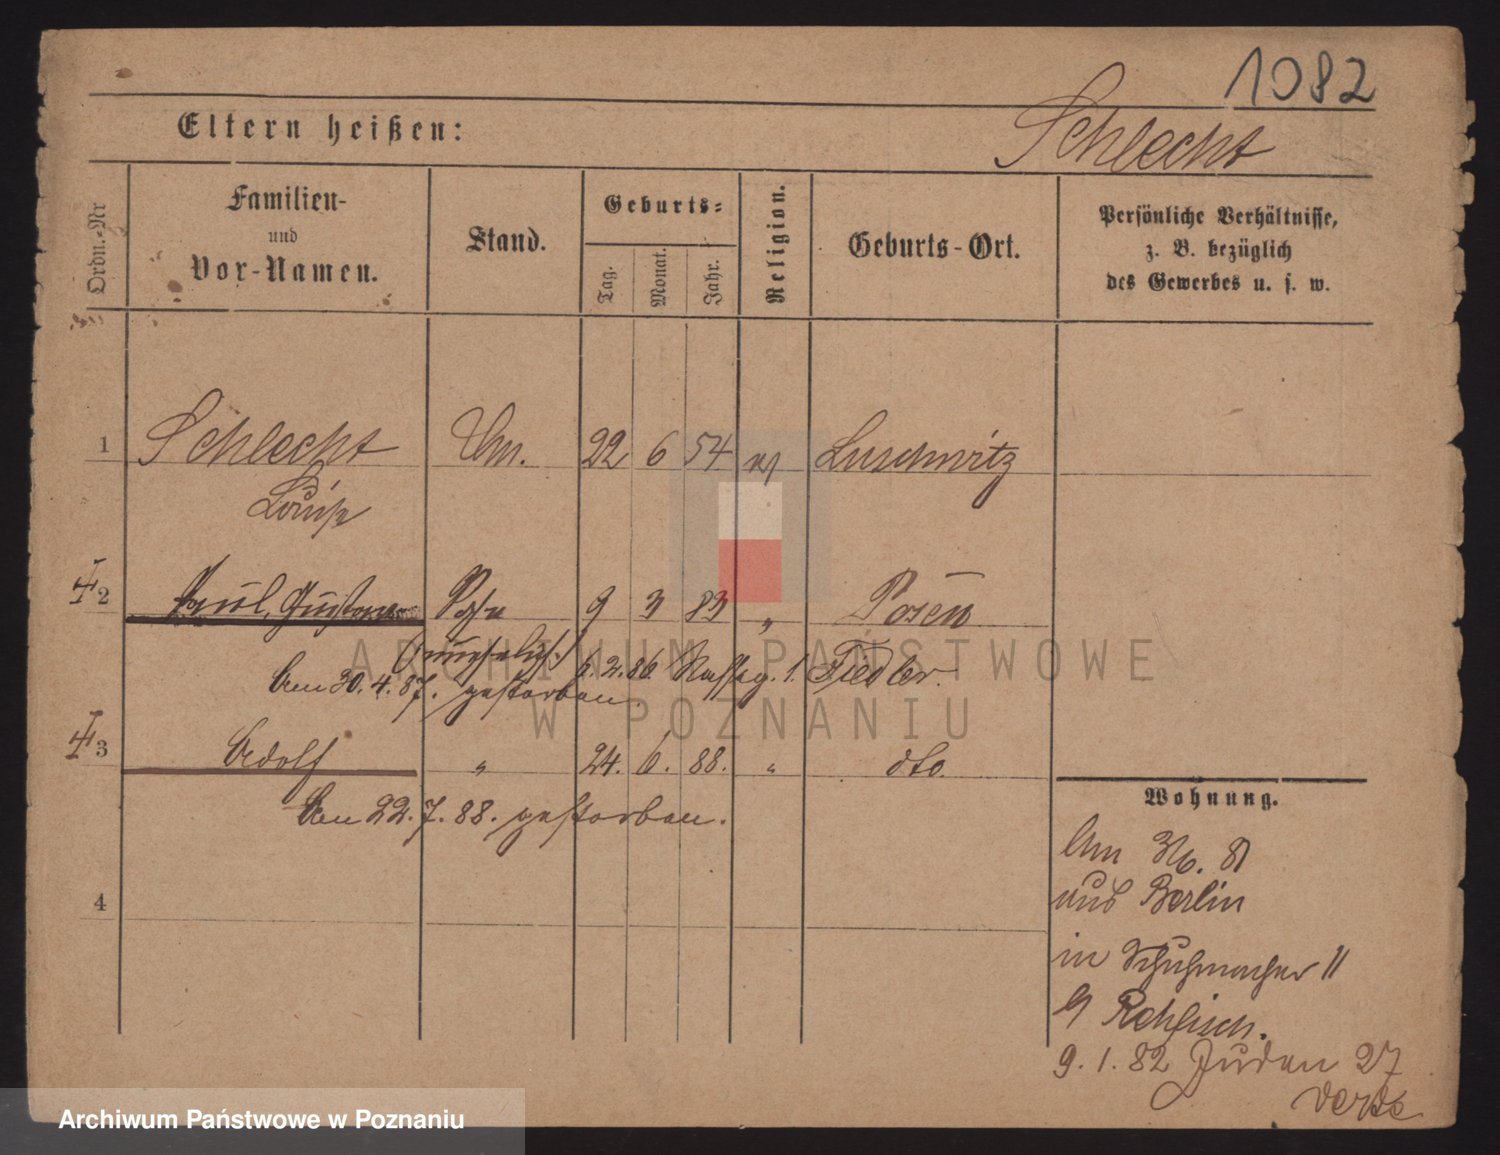 1082
Eltern heißen:
Schlecht
Ordn.-Nr
Familien-
und
Vor-Namen.
Stand.
Geburts-
Tag.
Monat.
Jahr.
Religion.
Geburts-Ort.
Persönliche Verhältnisse,
z. B. bezüglich
des Gewerbes u. s. w.
1 Schlecht 22 6 54 Luschwitz
Louise
2 Paul, Gustav Sohn 9 3 83 " Posen
(unehelich) 6.2.86. 1. Fiedler.
Am 30.4.87. gestorben.
3 Adolf " 24. 6. 88. " dto.
Am 22.7.88. gestorben.
4
Wohnung.
aus Berlin
in Schuhmacher 11
Rehfisch.
9.1.82 Juden 27
ARCHIWUM PAŃSTWOWE
W POZNANIU
Archiwum Państwowe w Poznaniu